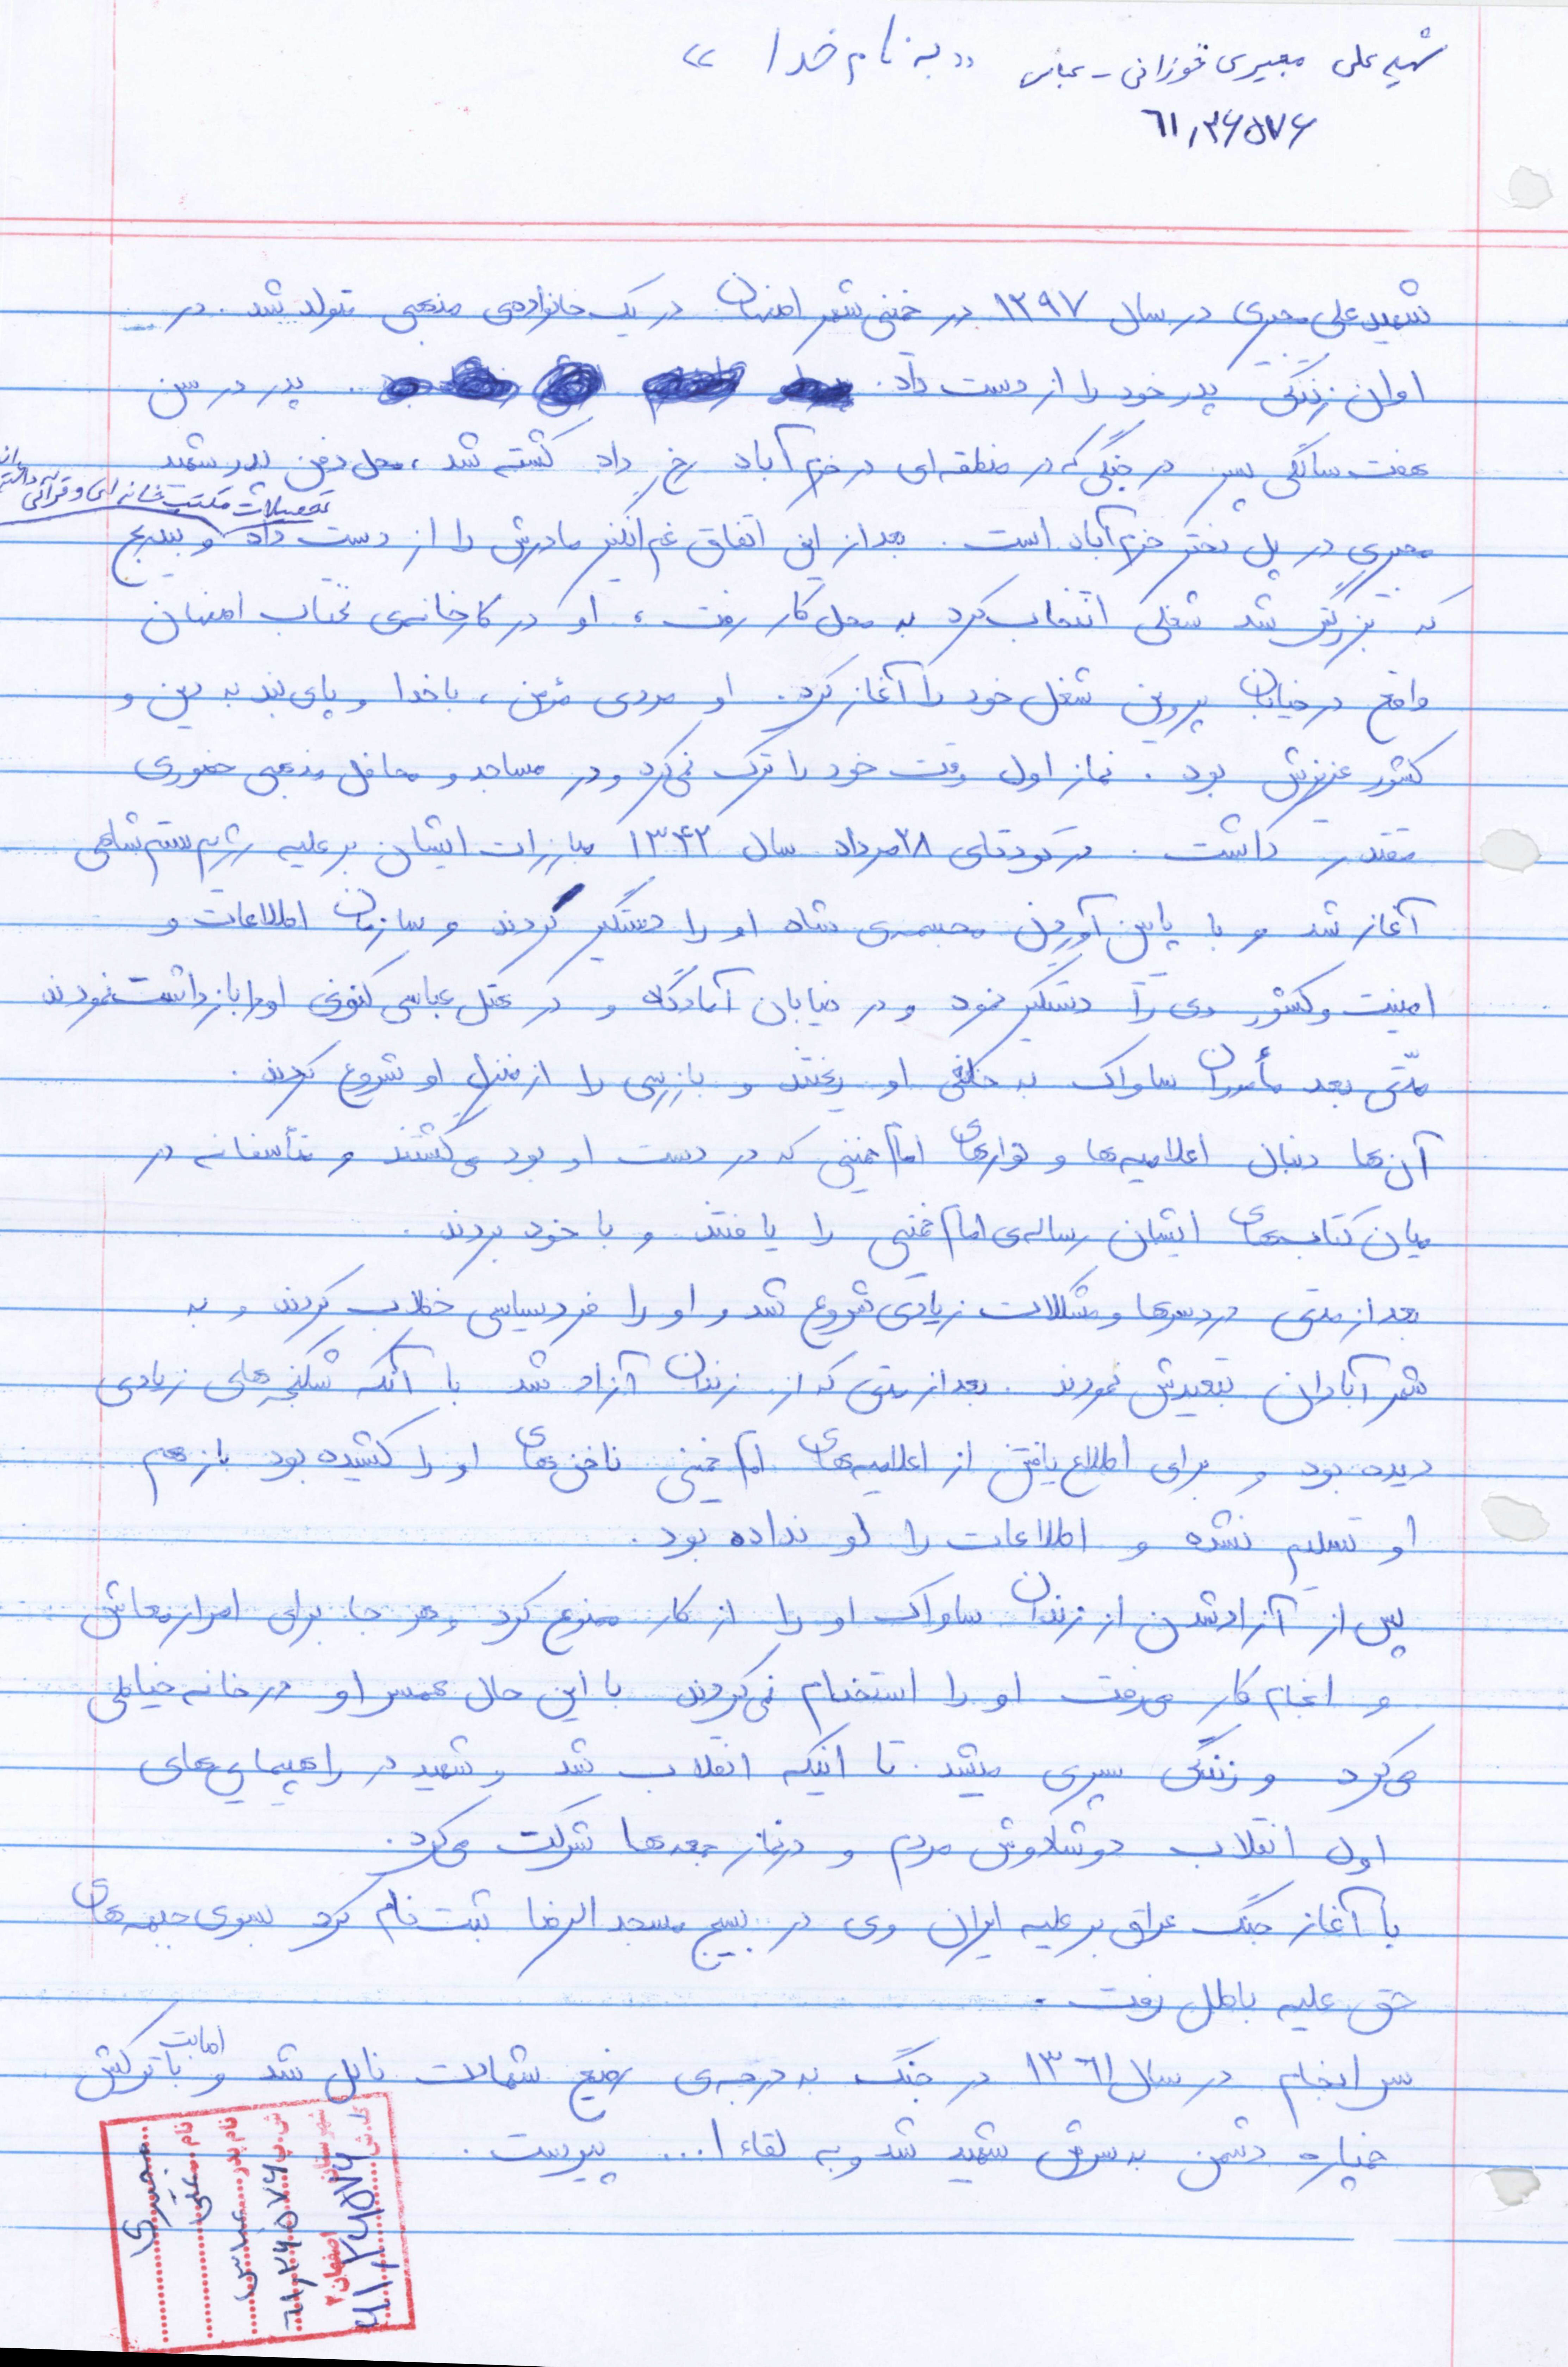 شهید علی مجیری فوزانی - عباس «به نام خدا»
۶۱٫۲۶۵۷۶
شهید علی مجیری در سال ۱۲۹۷ در خمینی شهر اصفهان در یک خانواده‌ی مذهبی متولد شد. در
اوان زندگی پدر خود را از دست داد. پدر در سن
هفت سالگی پسر در جنگی که در منطقه‌ای در خرم آباد رخ داد کشته شد، محل دفن پدر شهید
تحصیلات مکتب خانه ای و قرآنی
مجیری در پل دختر خرم آباد است. بعد از این اتفاق غم انگیز مادرش را از دست داد و بتدریج
که بزرگتر شد شغلی انتخاب کرد به محل کار رفت، او در کارخانه‌ی نختاب اصفهان
واقع در خیابان پروین شغل خود را آغاز کرد. او مردی مؤمن، با خدا و پای بند به دین و
کشور عزیزش بود. نماز اول وقت خود را ترک نمی‌کرد و در مساجد و محافل مذهبی حضوری
مقتدر داشت. در کودتای ۲۸ مرداد سال ۱۳۴۲ مبارزات ایشان بر علیه رژیم ستم شاهی
آغاز شد و با پایین آوردن مجسمه‌ی شاه او را دستگیر کردند و سازمان اطلاعات و
امنیت و کشور وی را دستگیر نمود و در خیابان آمادگاه و در هتل عباسی کنونی او را بازداشت نمودند
مدّتی بعد مأموران ساواک به خانه‌ی او ریختند و بازرسی را از منزل او شروع کردند.
آن‌ها دنبال اعلامیه‌ها و نوارهای امام خمینی که در دست او بود می‌گشتند و متأسفانه در
میان کتاب‌های ایشان رساله‌ی امام خمینی را یافتند و با خود بردند.
بعد از مدتی دردسرها و مشکلات زیادی شروع شد و او را فرد سیاسی خطاب کردند و به
شهر آبادان تبعیدش نمودند. بعد از مدتی که از زندان آزاد شد با آنکه شکنجه‌های زیادی
دیده بود و برای اطلاع یافتن از اعلامیه‌های امام خمینی ناخن‌های او را کشیده بود باز هم
او تسلیم نشده و اطلاعات را لو نداده بود.
پس از آزاد شدن از زندان ساواک او را از کار ممنوع کرد و هر جا برای امرار معاش
و انجام کار می‌رفت او را استخدام نمی‌کردند با این حال همسر او در خانه خیاطی
می‌کرد و زندگی سپری میشد. تا اینکه انقلاب شد و شهید در راهپیمایی‌های
اول انقلاب دوشادوش مردم و در نماز جمعه‌ها شرکت می‌کرد.
با آغاز جنگ عراق بر علیه ایران وی در بسیج مسجد الرضا ثبت نام کرد بسوی جبهه‌های
حق علیه باطل رفت.
سر انجام در سال ۱۳۶۱ در جنگ به درجه‌ی رفیع شهادت نایل شد و با اصابت ترکش
خمپاره دشمن به سرش شهید شد و به لقاء ا... پیوست.
مجیری
نام علی
نام پدر عباس
ش.پ ۶۱٫۲۶۵۷۶
اصفهان ۲
۶۱٫۲۶۵۷۶